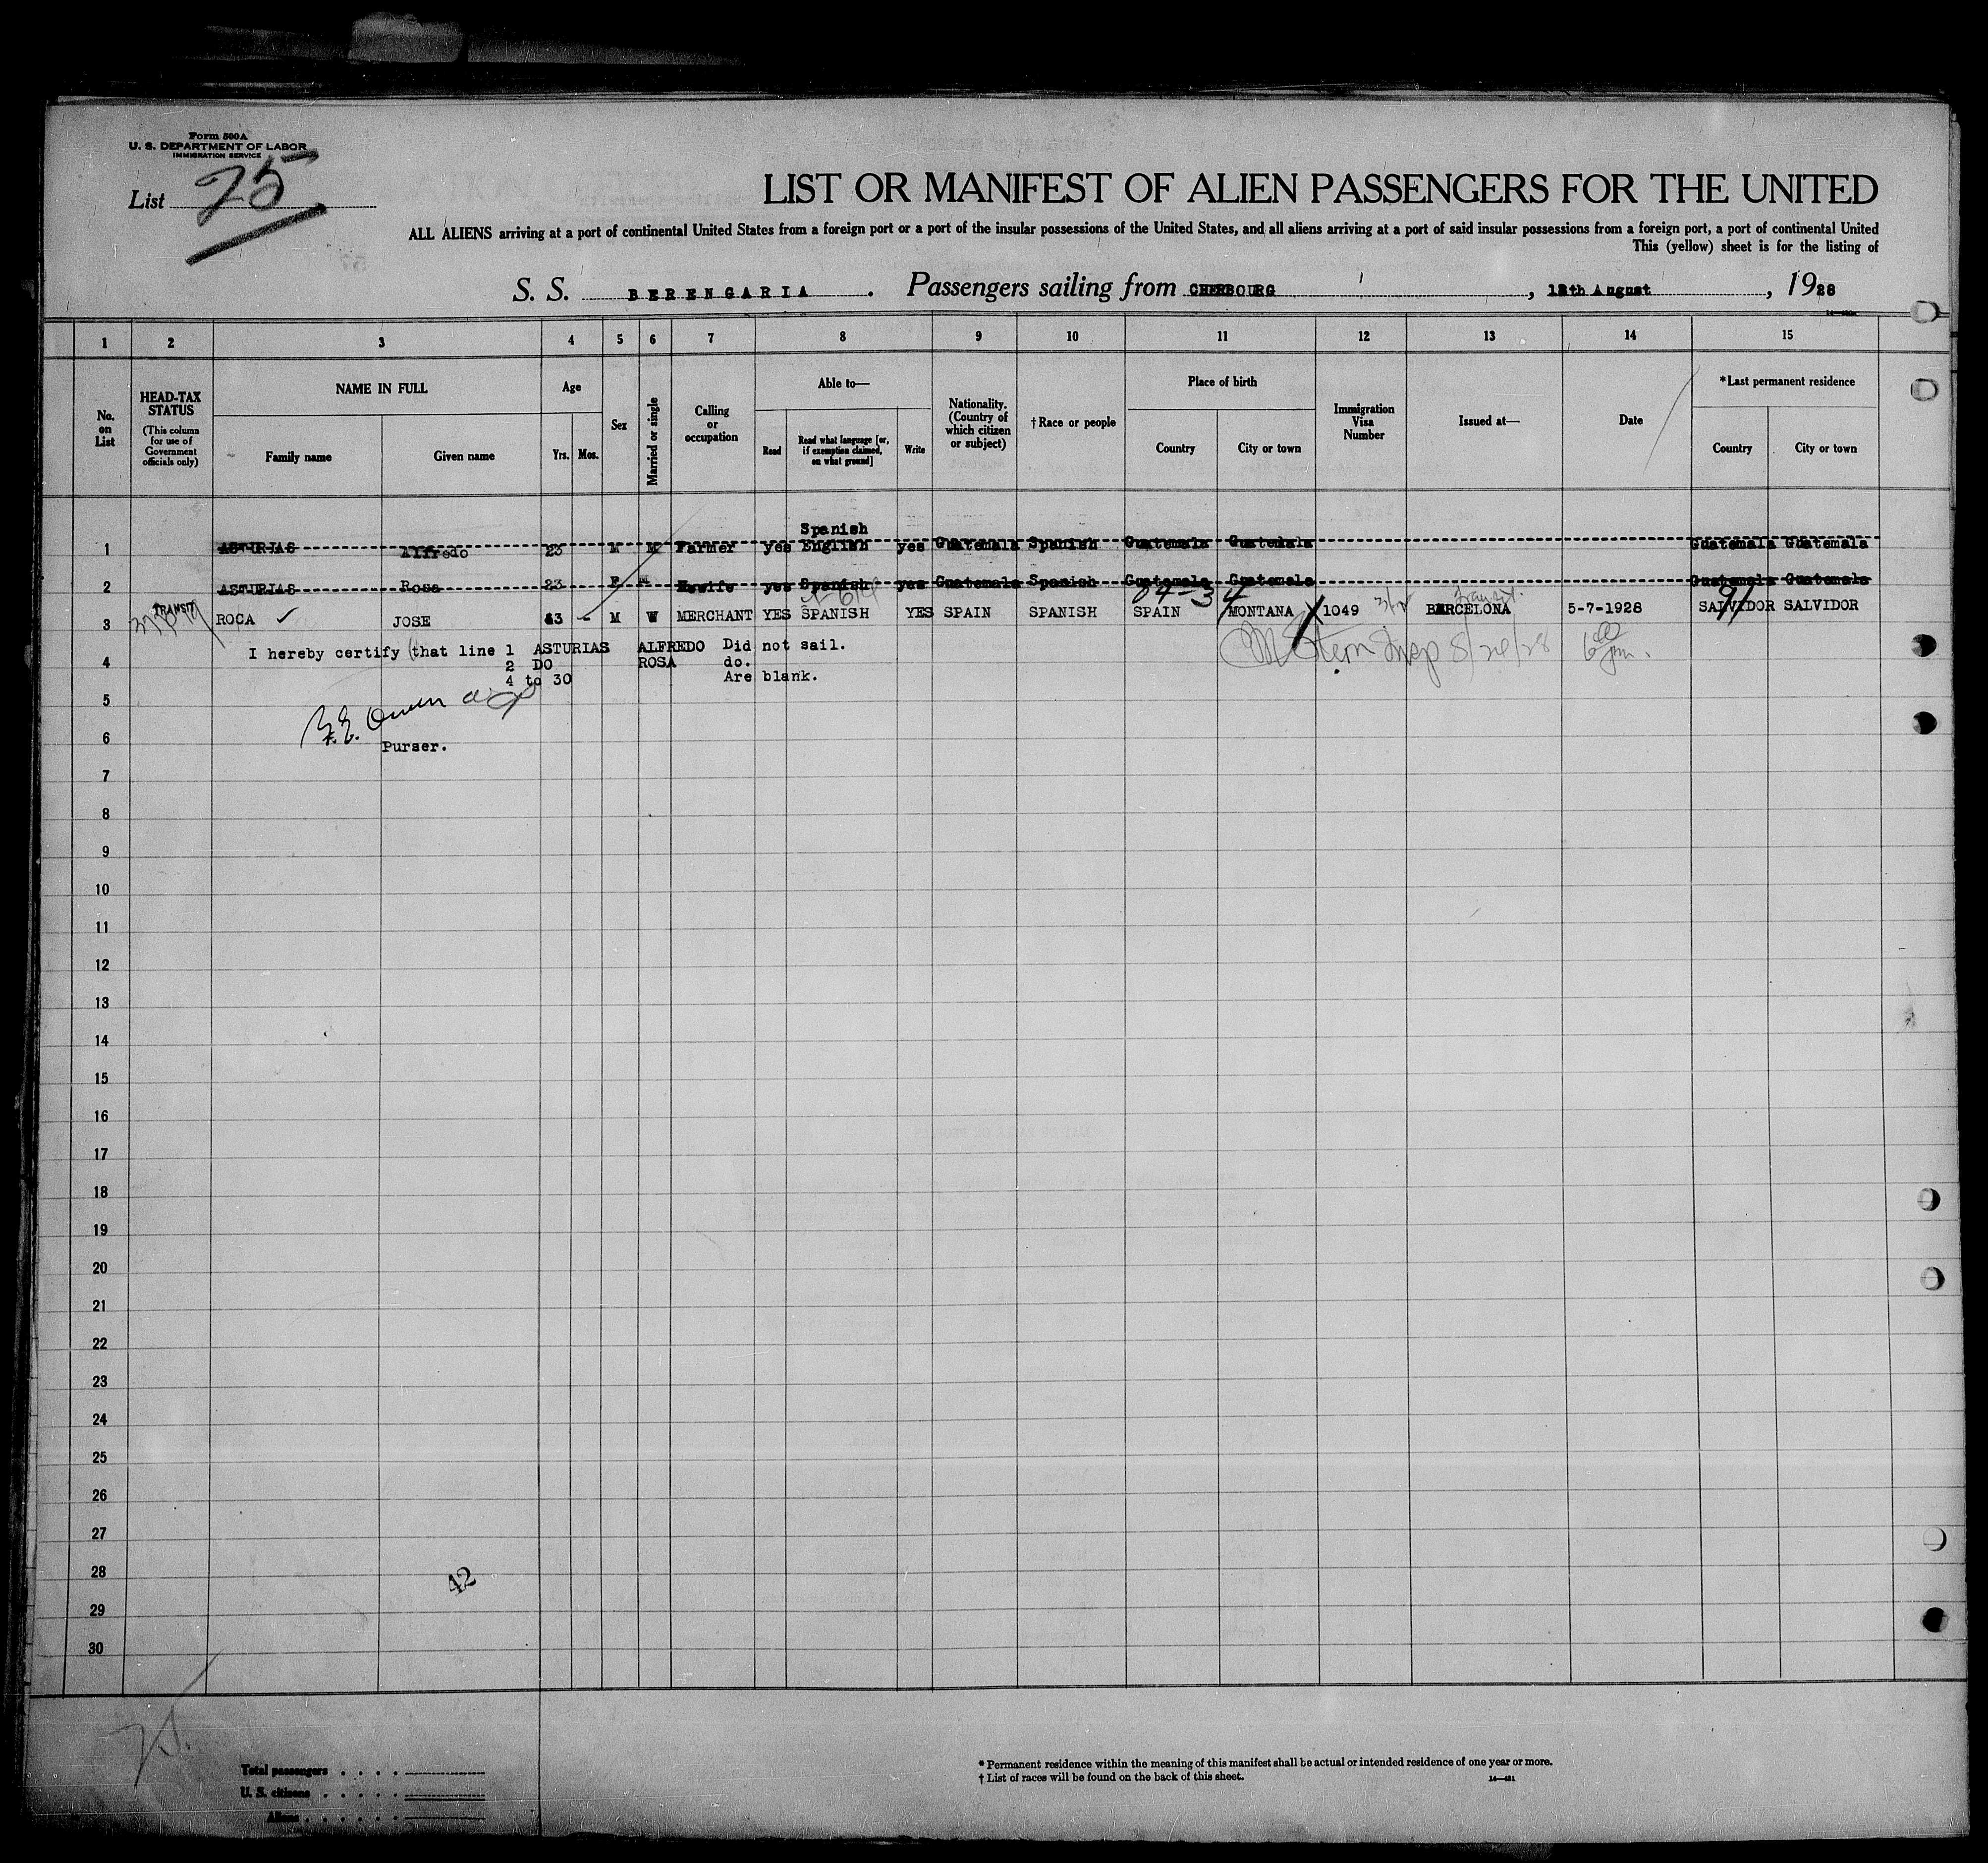 Form 500A
U. S. DEPARTMENT OF LABOR
IMMIGRATION SERVICE
List 25
LIST OR MANIFEST OF ALIEN PASSENGERS FOR THE UNITED
ALL ALIENS arriving at a port of continental United States from a foreign port or a port of the insular possessions of the United States, and all aliens arriving at a port of said insular possessions from a foreign port, a port of continental United
This (yellow) sheet is for the listing of
S. S. BERENGARIA. Passengers sailing from CHERBOURG, August, 1928
1 2 3 4 5 6 7 8 9 10 11 12 13 14 15
No. on List
HEAD-TAX STATUS (This column for use of Government officials only)
NAME IN FULL
Family name Given name
Age
Yrs. Mos.
Sex
Married or single
Calling or occupation
Able to—
Read Read what language [or, if exemption claimed, on what ground] Write
Nationality. (Country of which citizen or subject)
†Race or people
Place of birth
Country City or town
Immigration Visa Number
Issued at—
Date
*Last permanent residence
Country City or town
Spanish
1 ASTURIAS Alfredo 23 M M Farmer yes English yes Guatemala Spanish Guatemala Guatemala Guatemala Guatemala
2 ASTURIAS Rosa 23 F M Hewife yes Spanish yes Guatemala Spanish Guatemala Guatemala Guatemala Guatemala
TRANSIT 84-34 Transit.
3 ROCA ✓ JOSE 43 - M W MERCHANT YES SPANISH YES SPAIN SPANISH SPAIN MONTANA 1049 BARCELONA 5-7-1928 SALVIDOR SALVIDOR
91
I hereby certify that line 1 ASTURIAS ALFREDO Did not sail.
4 2 DO ROSA do.
4 to 30 Are blank.
M Stern Insp 8/24/28
5
6 Purser.
7
8
9
10
11
12
13
14
15
16
17
18
19
20
21
22
23
24
25
26
27
28 42
29
30
Total passengers
U. S. citizens
Aliens
* Permanent residence within the meaning of this manifest shall be actual or intended residence of one year or more.
† List of races will be found on the back of this sheet.
14—431